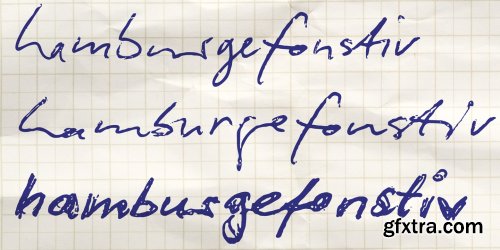 hamburgefonstiv
hamburgefonstiv
hamburgefonstiv
gfxtra.com